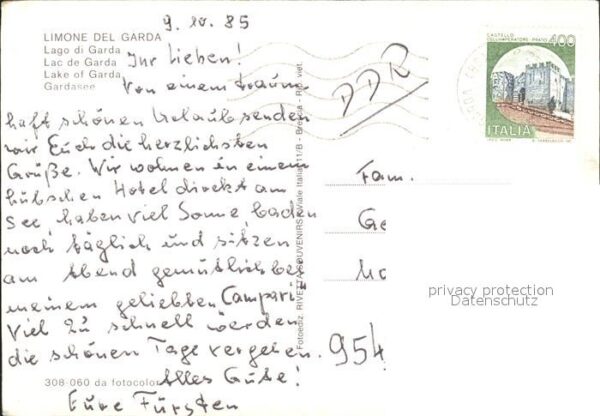 9.10.85
LIMONE DEL GARDA
Lago di Garda
Lac de Garde
Lake of Garda
Gardasee
Ihr Lieben!
Von einem traum-
haft schönen Urlaub senden
wir Euch die herzlichsten
Grüße. Wir wohnen in einem
hübschen Hotel direkt am
See, haben viel Sonne, baden
noch täglich und sitzen
am Abend gemütlich bei
meinem geliebten Campari.
Viel zu schnell werden
die schönen Tage vergehen.
Alles Gute!
Eure Fürsten
308-060 da fotocolor
Fotoediz. RIVETTA SOUVENIRS Viale Italia 11/B - Brescia - Rip. viet.
DDR
CASTELLO
DELL'IMPERATORE - PRATO
400
ITALIA
Fam.
Ge
954
privacy protection
Datenschutz